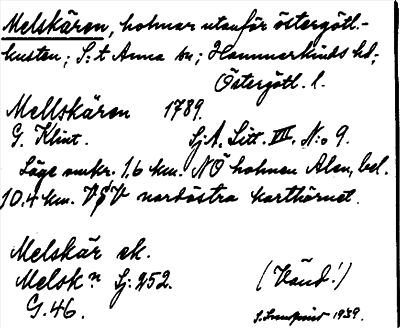 Melskären, holmar utanför östergötl.-
kusten; S:t Anna sn; Hammarkinds hd;
Östergötl. l.
Mellskären 1789.
G. Klint. Sj.A. Litt. III. N:o 9.
Läge omkr. 1,6 km. NÖ holmen Alen, bel.
10,4 km. VSV nordöstra karthörnet.
Melskär ek.
Melsk n Sj: 252. (Vänd!)
G. 46.
1939.